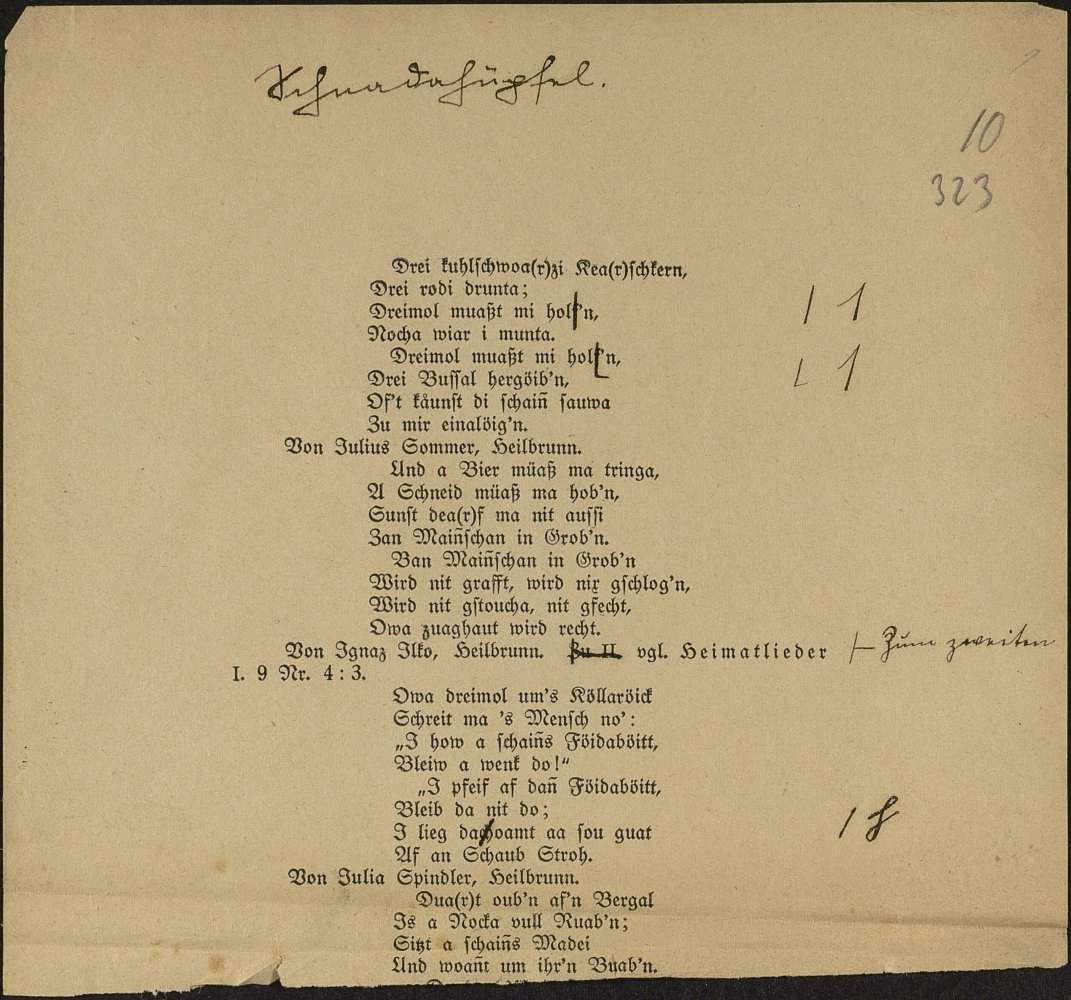 Schnadahüpfel.
10
323
Drei kuhlschwoa(r)zi Kea(r)schkern,
Drei rodi drunta;
Dreimol muaßt mi holf'n, / 1
Nocha wiar i munta.
Dreimol muaßt mi holf'n, L 1
Drei Bussal hergöib'n,
Of't kåunst di schaiñ sauwa
Zu mir einalöig'n.
Von Julius Sommer, Heilbrunn.
Und a Bier müaß ma tringa,
A Schneid müaß ma hob'n,
Sunst dea(r)f ma nit aussi
Zan Maiñschan in Grob'n.
Ban Maiñschan in Grob'n
Wird nit grafft, wird nix gschlog'n,
Wird nit gstoucha, nit gfecht,
Owa zuaghaut wird recht.
Von Ignaz Ilko, Heilbrunn. Zu II. vgl. Heimatlieder Zum zweiten
I. 9 Nr. 4 : 3.
Owa dreimol um's Köllaröick
Schreit ma 's Mensch no':
„I how a schaiñs Föidaböitt,
Bleiw a wenk do!“
„I pfeif af dañ Föidaböitt,
Bleib da nit do;
I lieg dahoamt aa sou guat / h
Af an Schaub Stroh.
Von Julia Spindler, Heilbrunn.
Dua(r)t oub'n af'n Bergal
Is a Nocka vull Ruab'n;
Sitzt a schaiñs Madei
Und woañt um ihr'n Buab'n.